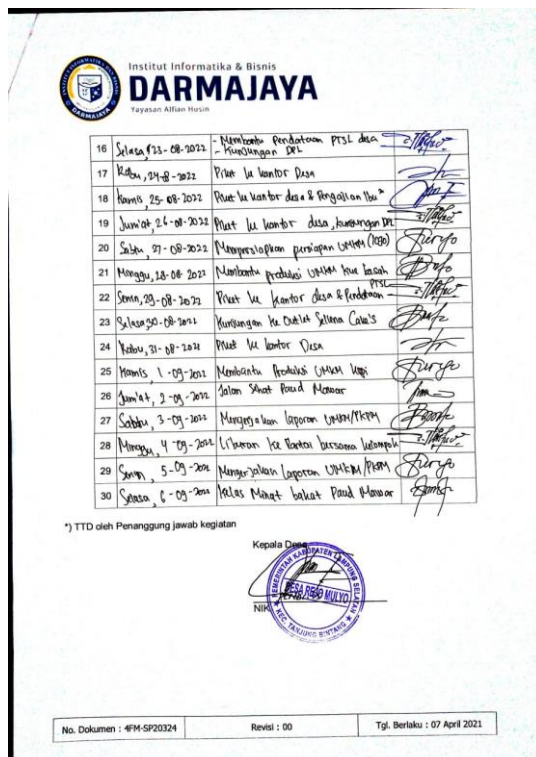 Institut Informatika & Bisnis
DARMAJAYA
Yayasan Alfian Husin
16 Selasa, 23-08-2022 - Membantu Pendataan PTSL desa
- Kunjungan DPL
17 Rabu, 24-8-2022 Piket ke kantor Desa
18 Kamis, 25-08-2022 Piket ke kantor desa & Pengajian Ibu²
19 Jum'at, 26-08-2022 Piket ke kantor desa, kunjungan DPL
20 Sabtu, 27-08-2022 Mempersiapkan persiapan UMKM (logo)
21 Minggu, 28-08-2022 Membantu produksi UMKM kue basah
22 Senin, 29-08-2022 Piket ke kantor desa & Pendataan PTSL
23 Selasa, 30-08-2022 Kunjungan ke Outlet Sellena Cake's
24 Rabu, 31-08-2022 Piket ke kantor Desa
25 Kamis, 1-09-2022 Membantu Produksi UMKM kopi
26 Jum'at, 2-09-2022 Jalan Sehat Paud Mawar
27 Sabtu, 3-09-2022 Mengerjakan laporan UMKM/PKPM
28 Minggu, 4-09-2022 Liburan ke Pantai bersama kelompok
29 Senin, 5-09-2022 Mengerjakan Laporan UMKM/PKPM
30 Selasa, 6-09-2022 Kelas Minat bakat Paud Mawar
*) TTD oleh Penanggung jawab kegiatan
Kepala Desa
PEMERINTAH KABUPATEN LAMPUNG SELATAN
DESA REJO MULYO
KEC. TANJUNG BINTANG
NIK
No. Dokumen : 4FM-SP20324
Revisi : 00
Tgl. Berlaku : 07 April 2021